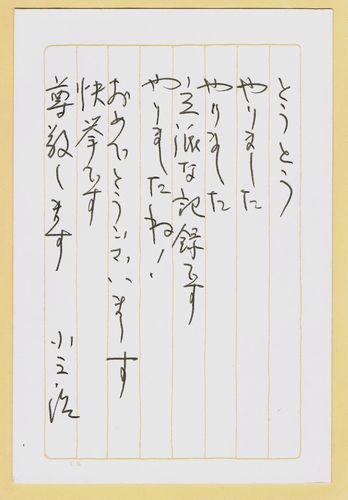 とうとう
やりました
やりました
立派な記録です
やりましたね!
おめでとうございます
快挙です
尊敬します
小三治